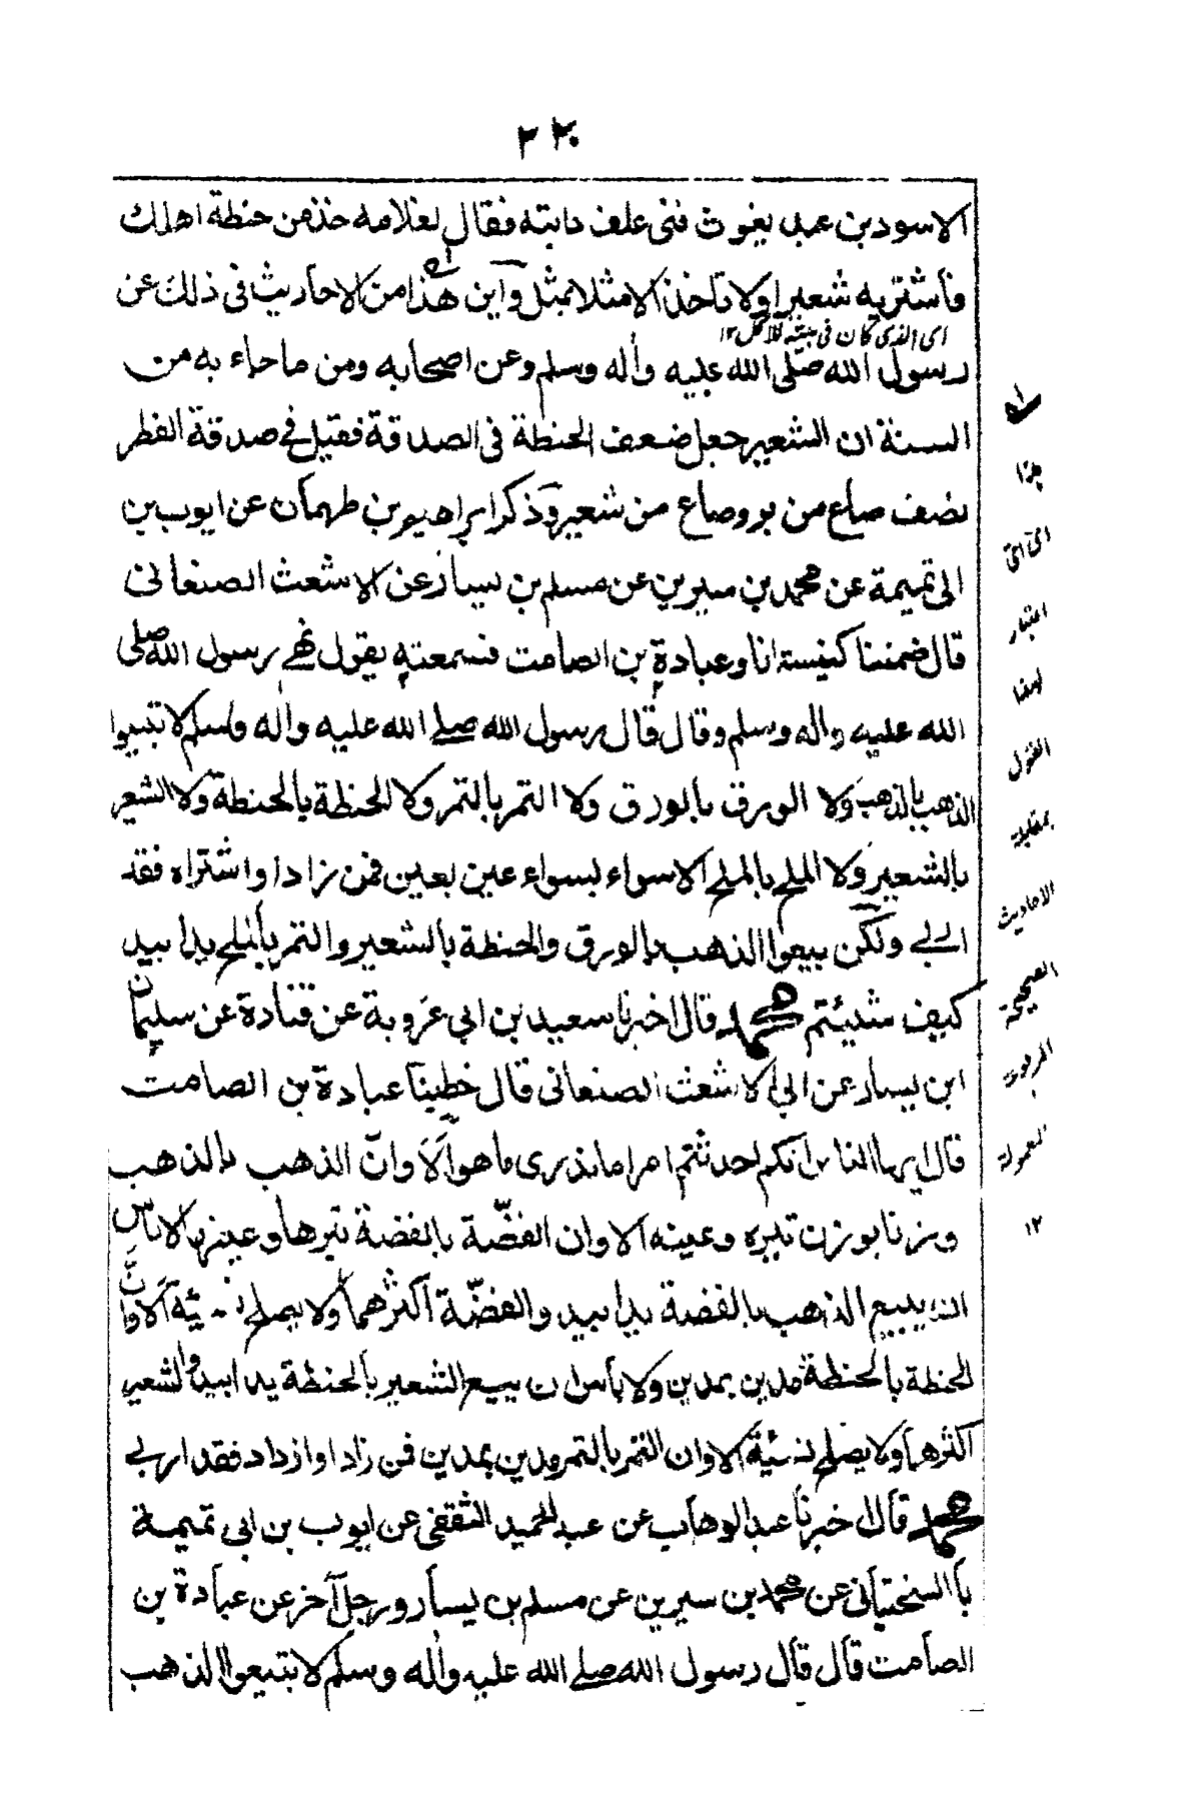 ٢٢٠
الاسود بن عبد يغوث فنى علف دابته فقال لغلامه خذ من حنطة اهلك
فأشتر به شعيرا ولا تأخذ الا مثلا بمثل وأين هذا من الاحاديث فى ذلك عن
اى الذى كان فى بيته للاكل ١٢
رسول الله صلى الله عليه وأله وسلم وعن اصحابه ومن ما جاء به من
السنة ان الشعير جعل ضعف الحنطة فى الصدقة فقيل فے صدقة الفطر
نصف صاع من بر وصاع من شعير وذكر ابراهيم بن طهمان عن ايوب بن
ابى تميمة عن محمد بن سيرين عن مسلم بن يسار عن الاشعث الصنعانى
قال ضمننا كنيسة انا وعبادة بن الصامت فسمعته يقول نهے رسول الله صلى
الله عليه واله وسلم وقال قال رسول الله صلے الله عليه واله وسلم لا تبيعوا
الذهب بالذهب ولا الورق بالورق ولا التمر بالتمر ولا الحنطة بالحنطة ولا الشعير
بالشعير ولا الملح بالملح الا سواء بسواء عين بعين فمن زاد او اشتراه فقد
اربے ولكن بيعوا الذهب بالورق والحنطة بالشعير والتمر بالملح يدا بيد
كيف شئيتم محمد قال اخبرنا سعيد بن ابى عروبة عن قتادة عن سليمان
ابن يسار عن ابى الاشعث الصنعانى قال خطبنا عبادة بن الصامت
قال ايها الناس انكم احدثتم امرا ما ندرى ما هو ألا وان الذهب بالذهب
وزنا بوزن تبره وعينه الا وان الفضة بالفضة تبرها وعينها لا بأس
ان يبيع الذهب بالفضة يدا بيد والفضة اكثرهما ولا يصلح نسيئة الا وان
الحنطة بالحنطة مدين بمدين ولا بأس ان يبيع الشعير بالحنطة يدا بيد والشعير
اكثرهما ولا يصلح نسئية الا وان التمر بالتمر مدين بمدين فمن زاد او ازداد فقد اربے
محمد قال اخبرنا عبد الوهاب عن عبد الحميد الثقفى عن ايوب بن ابى تميمة
بأالسختيانى عن محمد بن سيرين عن مسلم بن يسار ورجل آخر عن عبادة بن
الصامت قال قال رسول الله صلے الله عليه واله وسلم لا تبتيعوا الذهب
هذا
اى اىّ
اعتبار
لهذا
القول
بمقابلة
الاحاديث
الصحيحة
المروية
المعمولة
١٢